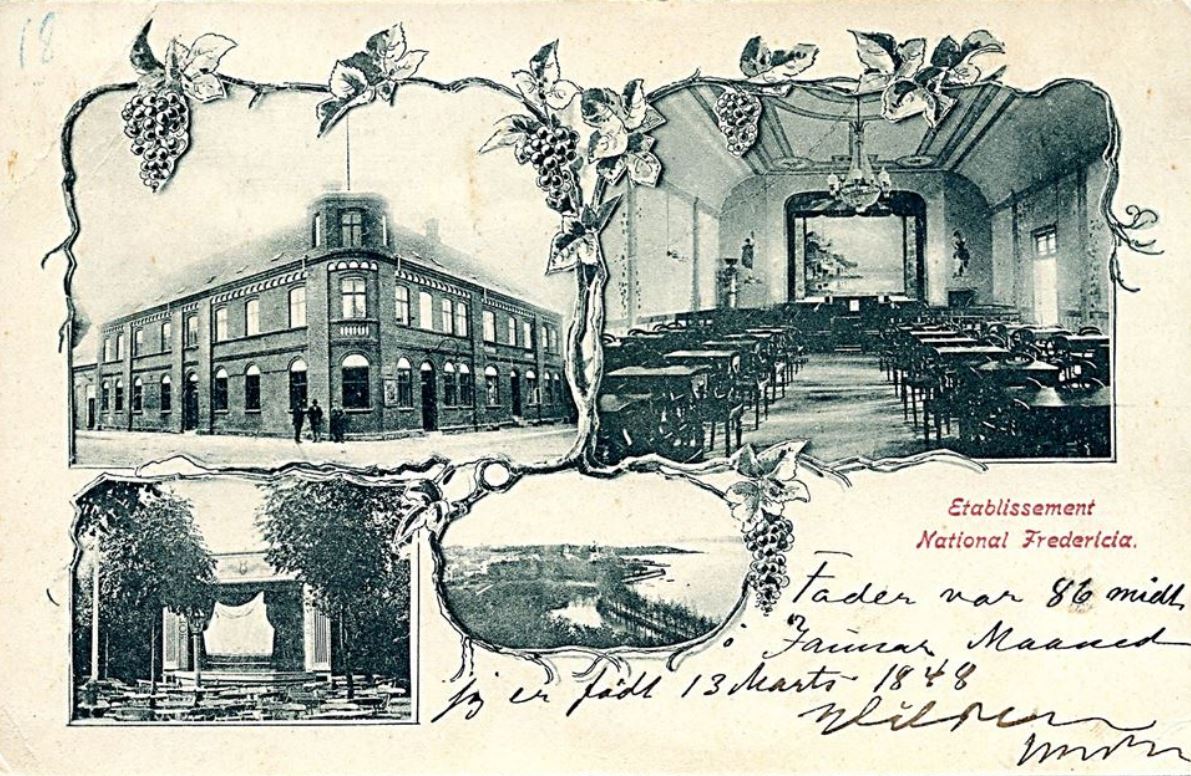 18
Etablissement
National Fredericia.
Fader var 86 midt
i Januar Maaned
jeg er född 13 Marts 1848